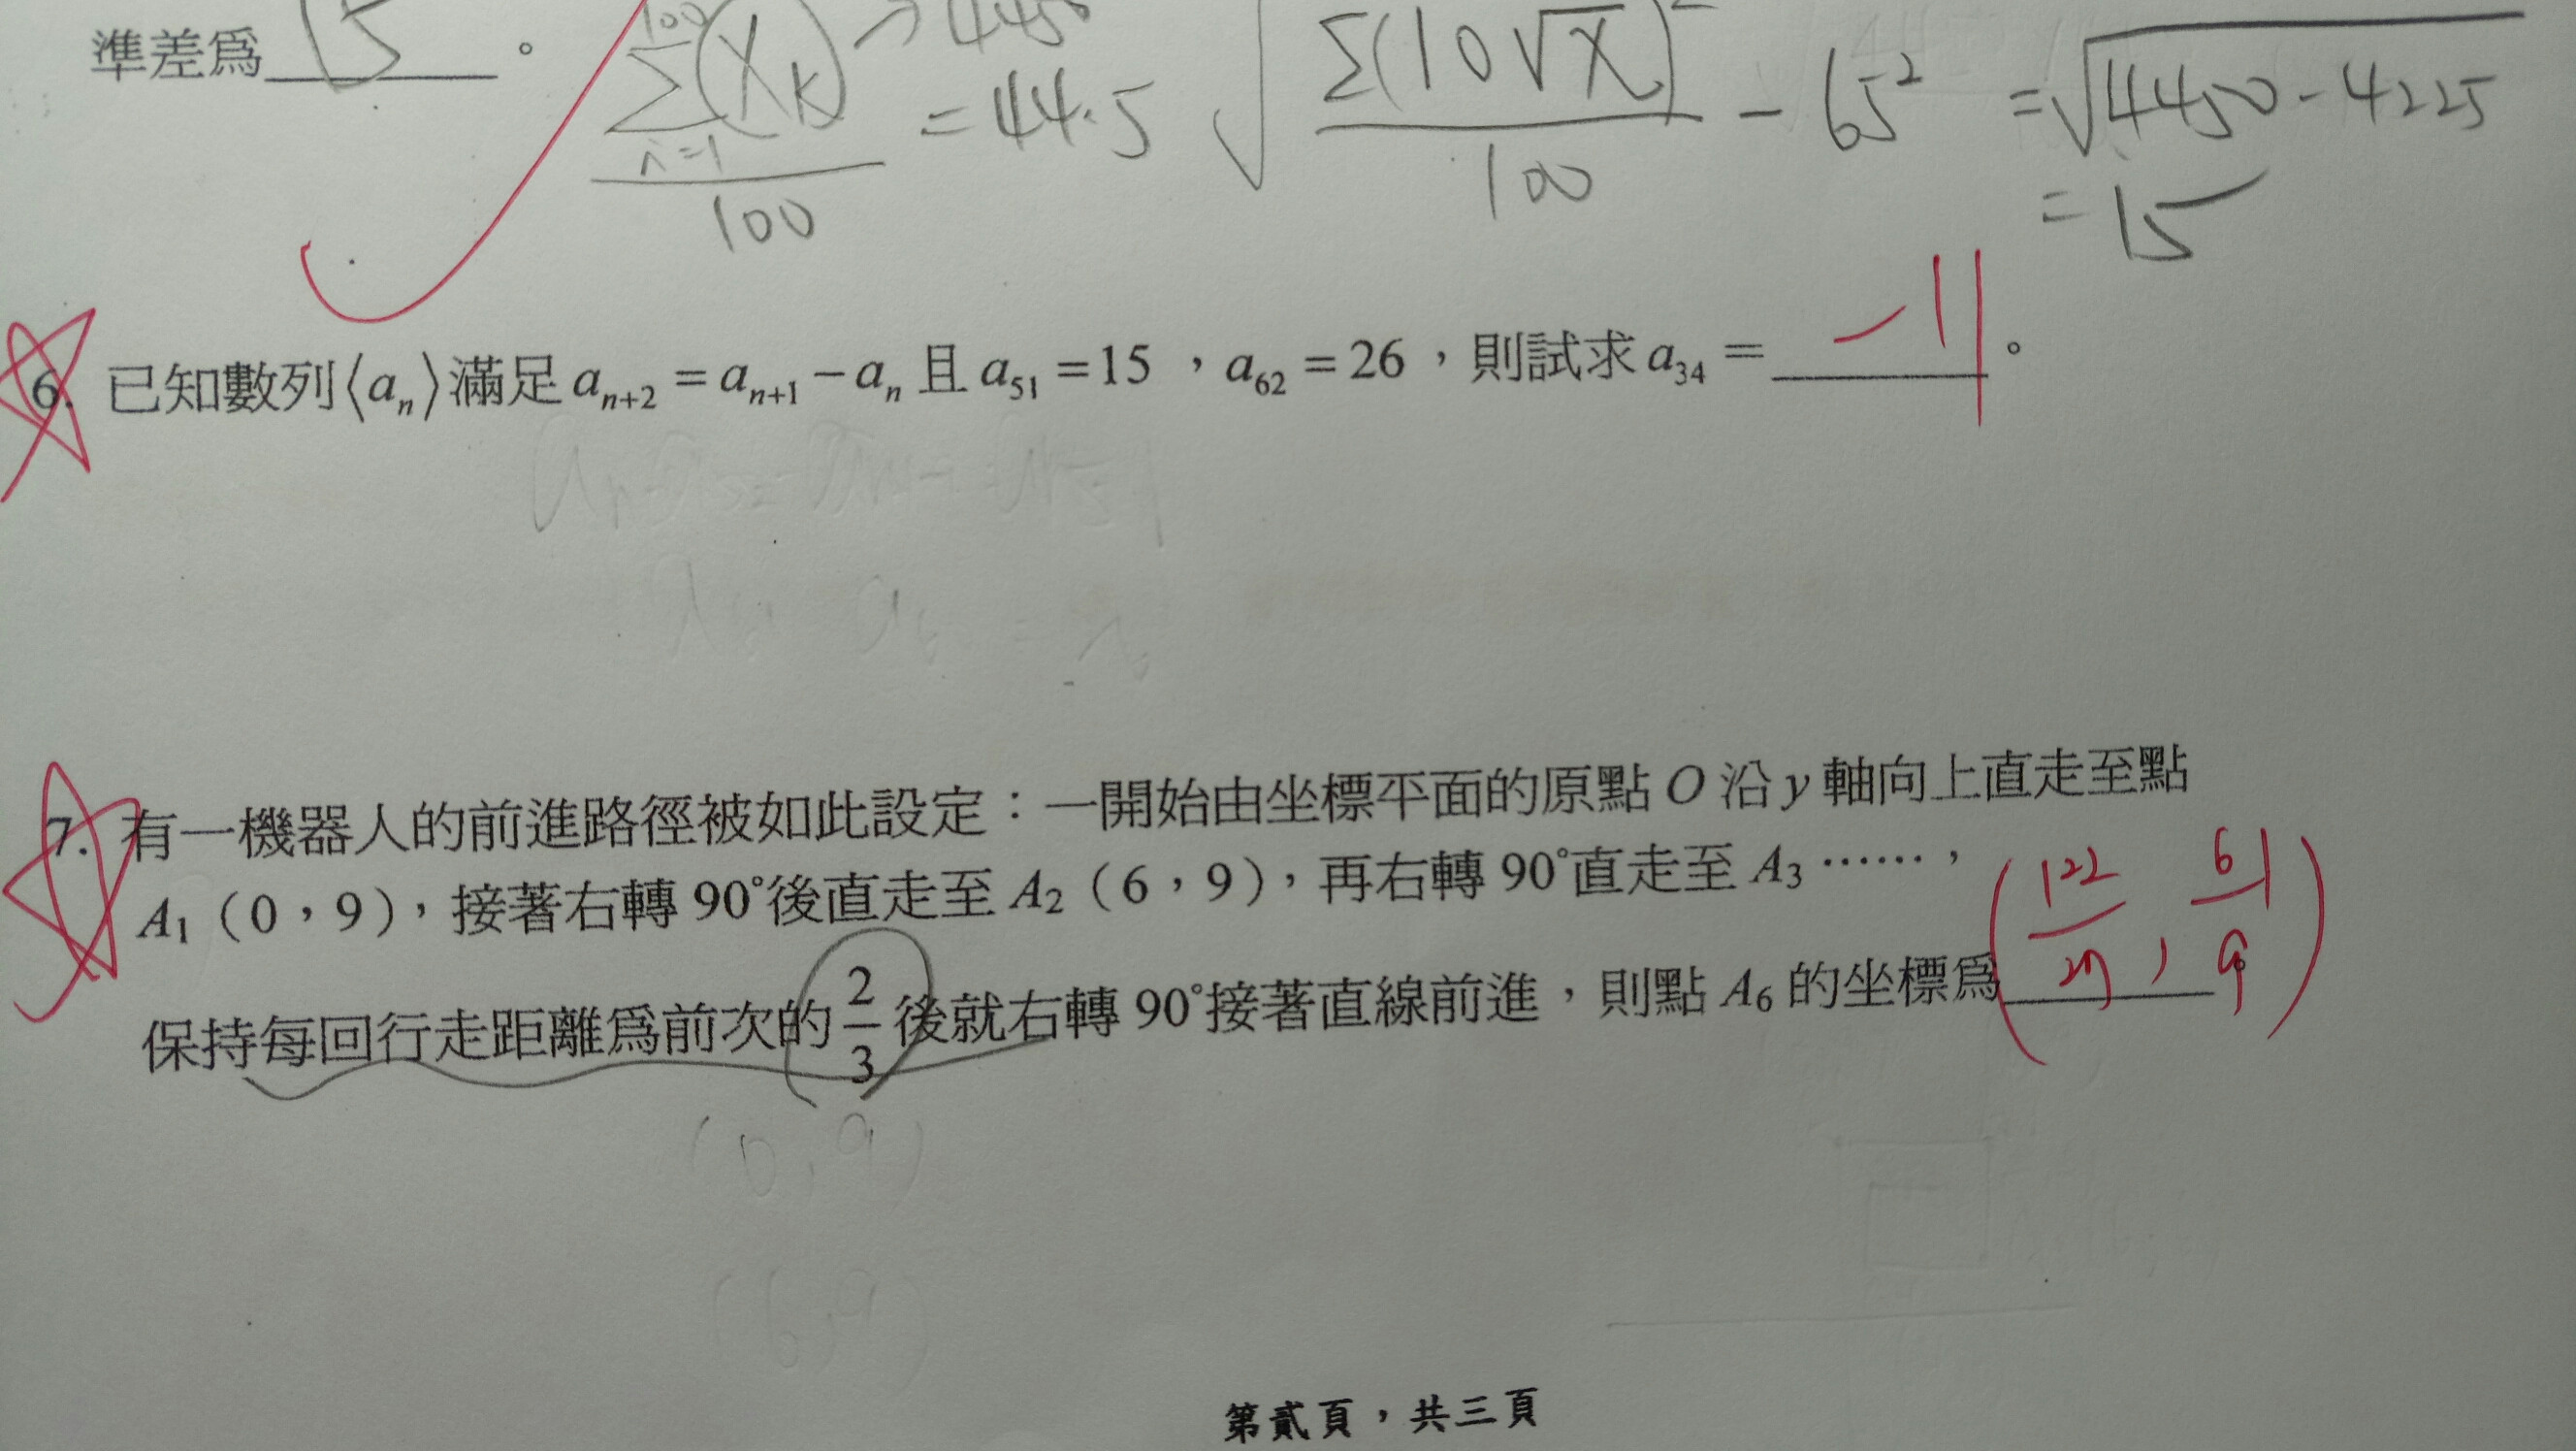 準差為 15 。 100 Σ i=1 (Xk) → 4450 / 100 = 44.5 √ Σ(10√X)² / 100 - 65² = √4450-4225
= 15
6. 已知數列⟨aₙ⟩滿足 aₙ₊₂ = aₙ₊₁ − aₙ 且 a₅₁ = 15 ，a₆₂ = 26 ，則試求 a₃₄ = -11 。
7. 有一機器人的前進路徑被如此設定：一開始由坐標平面的原點 O 沿 y 軸向上直走至點
A₁（0，9），接著右轉 90°後直走至 A₂（6，9），再右轉 90°直走至 A₃ ……，
保持每回行走距離為前次的 2/3 後就右轉 90°接著直線前進，則點 A₆ 的坐標為 (122/27, 61/9)
(0,9)
(6,9)
第貳頁，共三頁